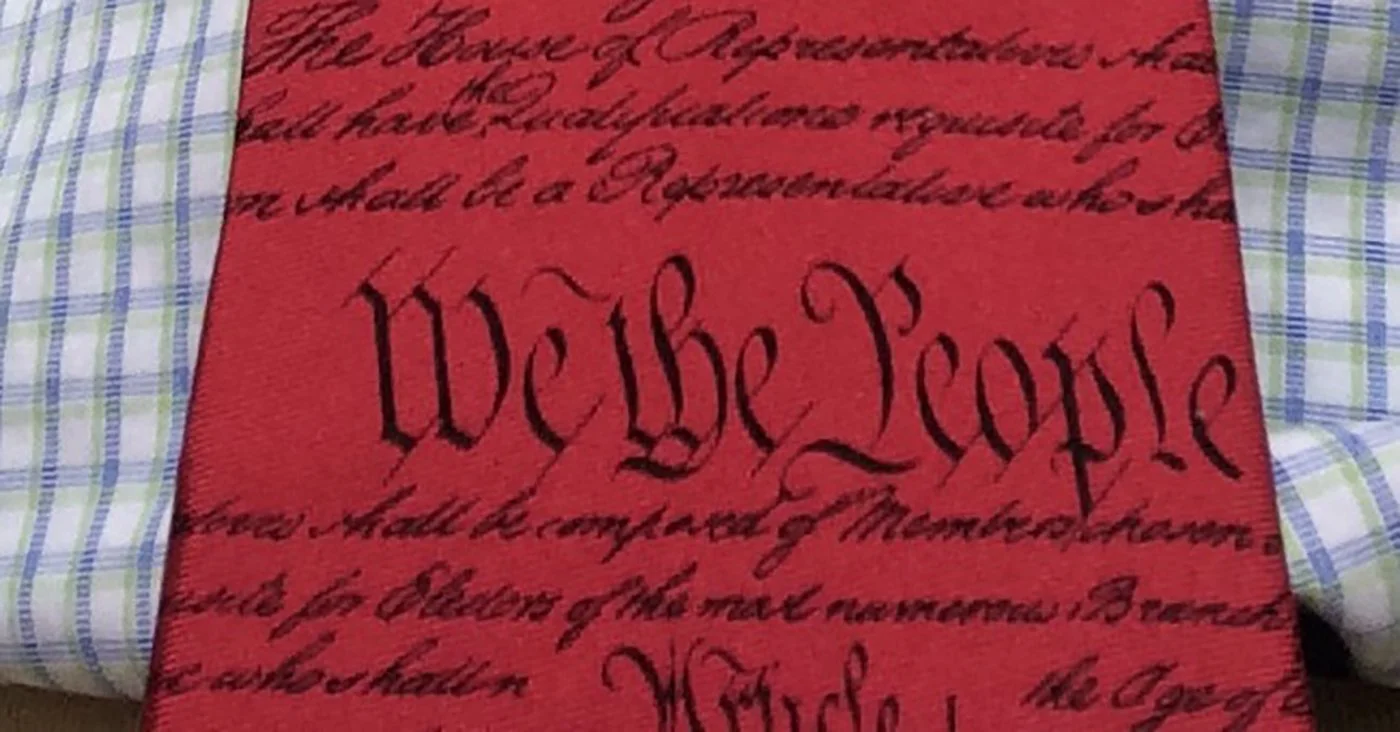 The House of Representatives shal
hall have the Qualifications requisite for E
n shall be a Representative who sha
We the People
tives shall be composed of Members chosen
uisite for Electors of the most numerous Branch
e who shall n the Age of
Article